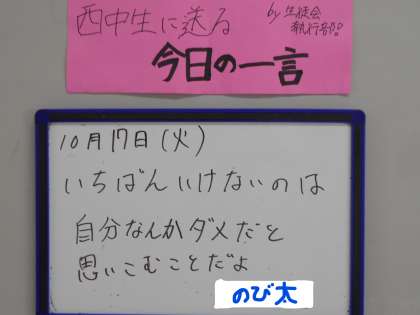 西中生に送る
by 生徒会
執行部!?
今日の一言
10月17日(火)
いちばんいけないのは
自分なんかダメだと
思いこむことだよ
のび太